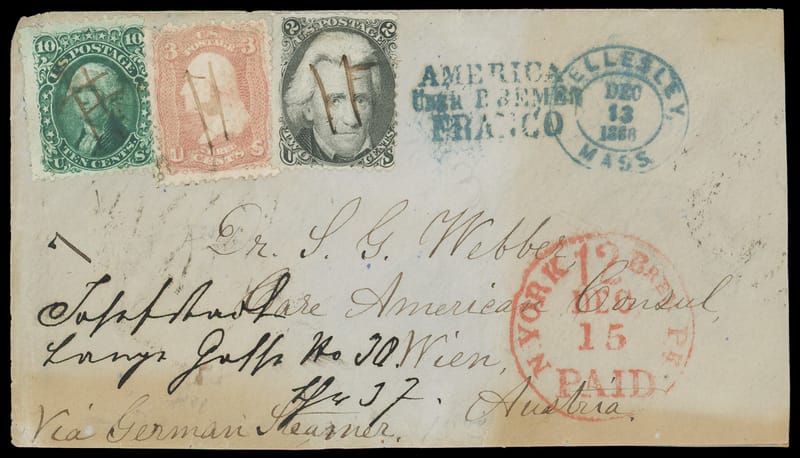 10 U.S. POSTAGE 10
U. TEN CENTS S.
3 U.S. POSTAGE 3
U THREE CENTS S
2 U.S. POSTAGE 2
U. TWO CENTS. S.
AMERICA
UEBER BREMEN
FRANCO
WELLESLEY,
DEC
13
1866
MASS.
Dr. S. G. Webber
Care American Consul,
Josefstadt
Lange Gasse No 38.
Wien,
Thr 37.
Austria.
Via German Steamer.
N. YORK 12 BREM. PKT.
DEC
15
PAID